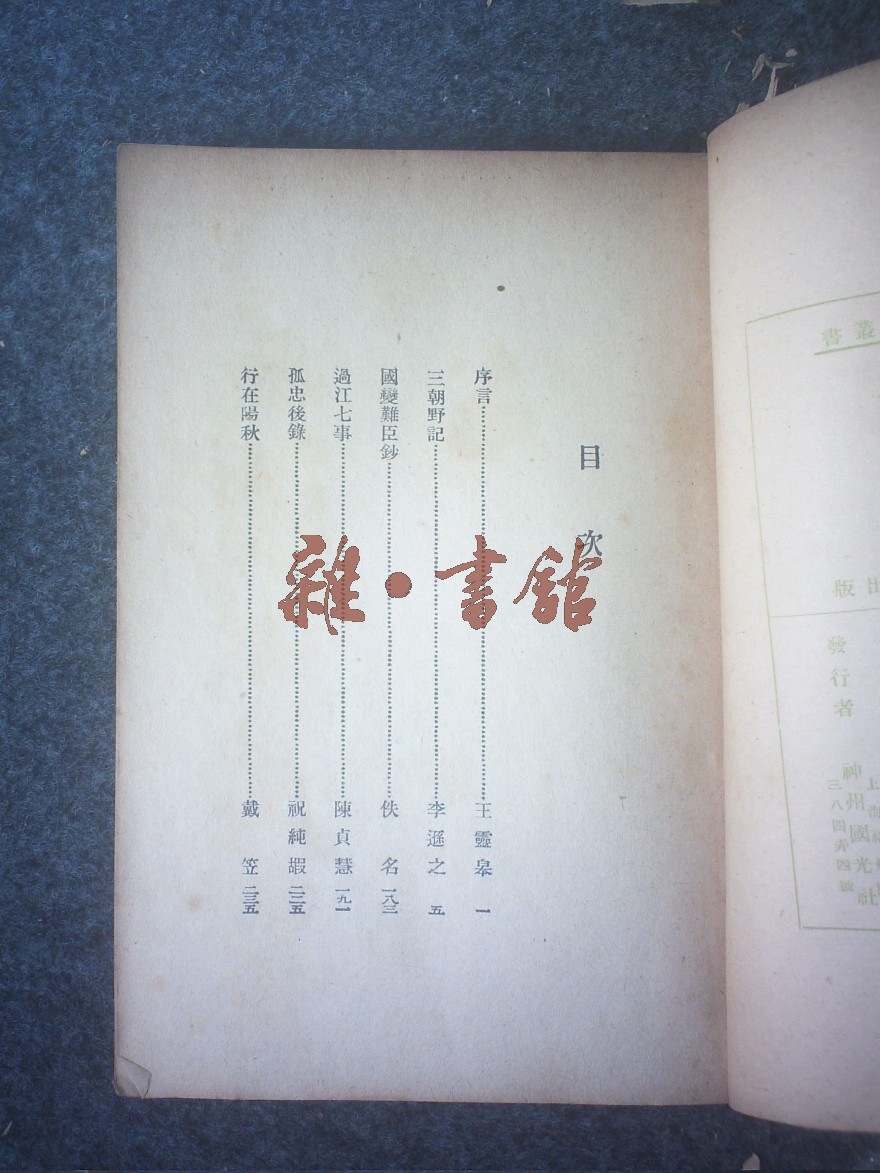 叢書
出版
發行者
神州國光社
上海
三八四弄四號
目次
序言 王靈皋 一
三朝野記 李遜之 五
國變難臣鈔 佚名 一八三
過江七事 陳貞慧 一九一
孤忠後錄 祝純嘏 二二五
行在陽秋 戴笠 二三五
雜·書館